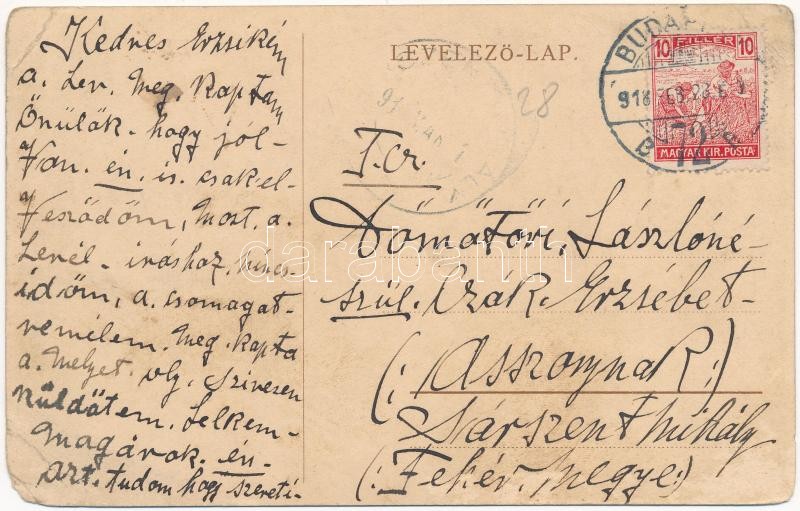 Kedves Erzsikém
a. Lev. Meg. kaptam
Örülök. hogy jól-
Van. én. is. csak el-
Vesződöm, Most. a.
Levél- iráshoz, nincs-
időm, a. csomagat-
remélem. Meg. kapta
a. Melyet. oly. szivesen
küldötem. Lelkem-
magárok. én-
azt. tudom hogy szereti-
LEVELEZŐ-LAP.
28
BUDAPEST
918
72
10 FILLER 10
MAGYAR KIR. POSTA
T. cz.
Dömötöri. Lászlóné-
szül. Czák. Erzsébet-
(: Asszonynak :)
Sárszentmihály
(: Fehér. megye :)
darabanth